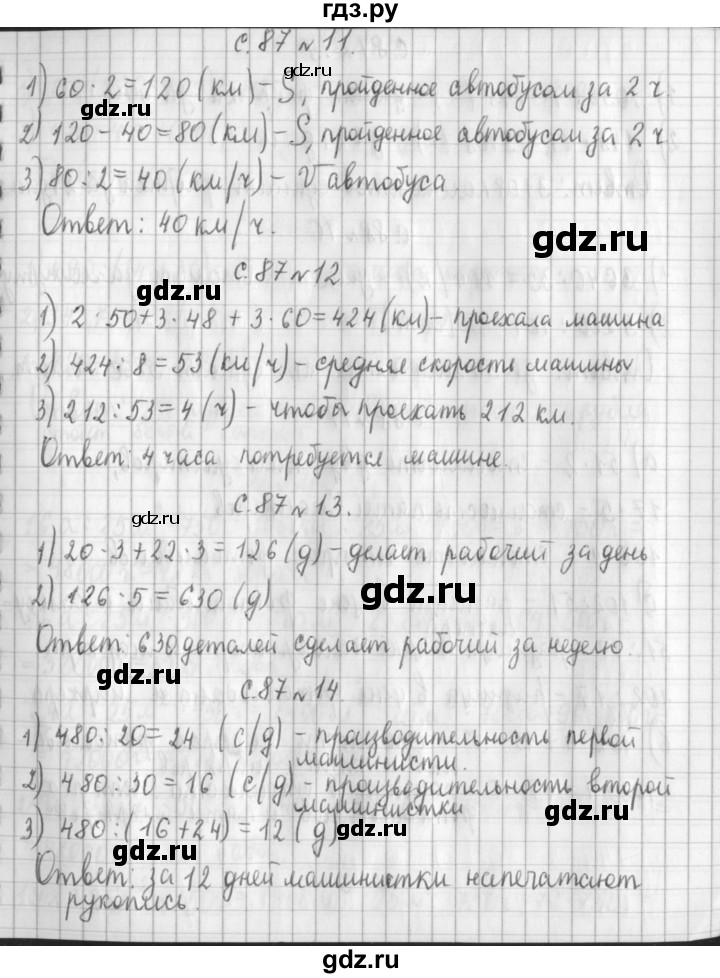 гдз.ру
с.87 №11.
1) 60·2=120(км)-S, пройденное автобусом за 2 ч.
2) 120-40=80(км)-S, пройденное автобусом за 2 ч
3) 80:2=40(км/ч)-V автобуса
Ответ: 40 км/ч.
gdz.ru
с.87№12
gdz.ru
1) 2·50+3·48+3·60=424(км)-проехала машина
2) 424:8=53(км/ч)-средняя скорость машины
3) 212:53=4(ч)-чтобы проехать 212 км.
Ответ: 4 часа потребуется машине.
с.87№13.
gdz.ru
1) 20·3+22·3=126(д)-делает рабочий за день
2) 126·5=630(д)
gdz.ru
Ответ: 630 деталей сделает рабочий за неделю.
gdz.ru
с.87№14.
1) 480:20=24 (с/д)-производительность первой
машинисти.
2) 480:30=16 (с/д)-производительность второй
машинистки
3) 480:(16+24)=12(д)
gdz.ru
gdz.ru
Ответ: за 12 дней машинистки напечатают
рукопись.
gdz.ru